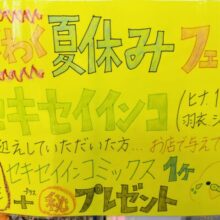 わく 夏休み フェ
セキセイインコ (ヒナ
羽衣
迎えしていただいた方… お店で与えて
セキセイインコミックス 1ケ
+ プラス ㊙ プレゼント